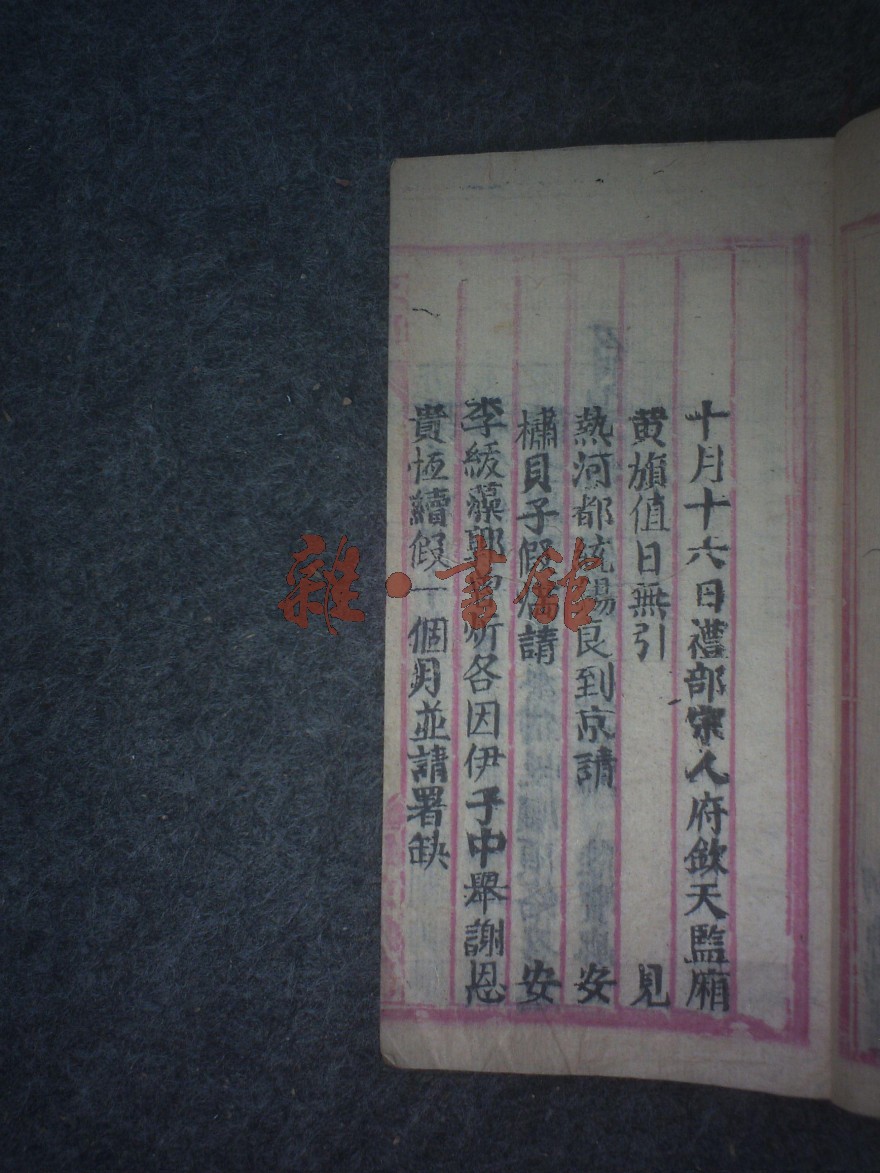 十月十六日禮部宗人府欽天監廂
黄旗值日無引 見
熱河都統錫良到京請 安
橚貝子假滿請 安
李綏藻郭曾炘各因伊子中舉謝恩
貴恆續假一個月並請署缺
雜·書館